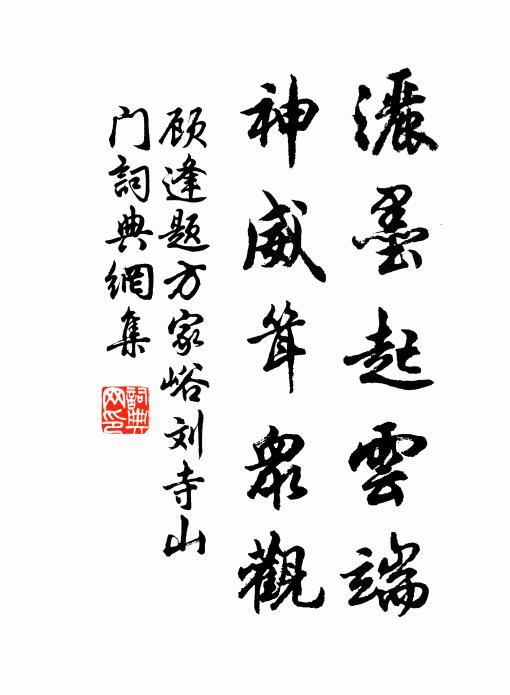 灑墨起雲端
神威聳眾觀
顾逢题方家峪刘寺山
门詞典網集
詞典网印